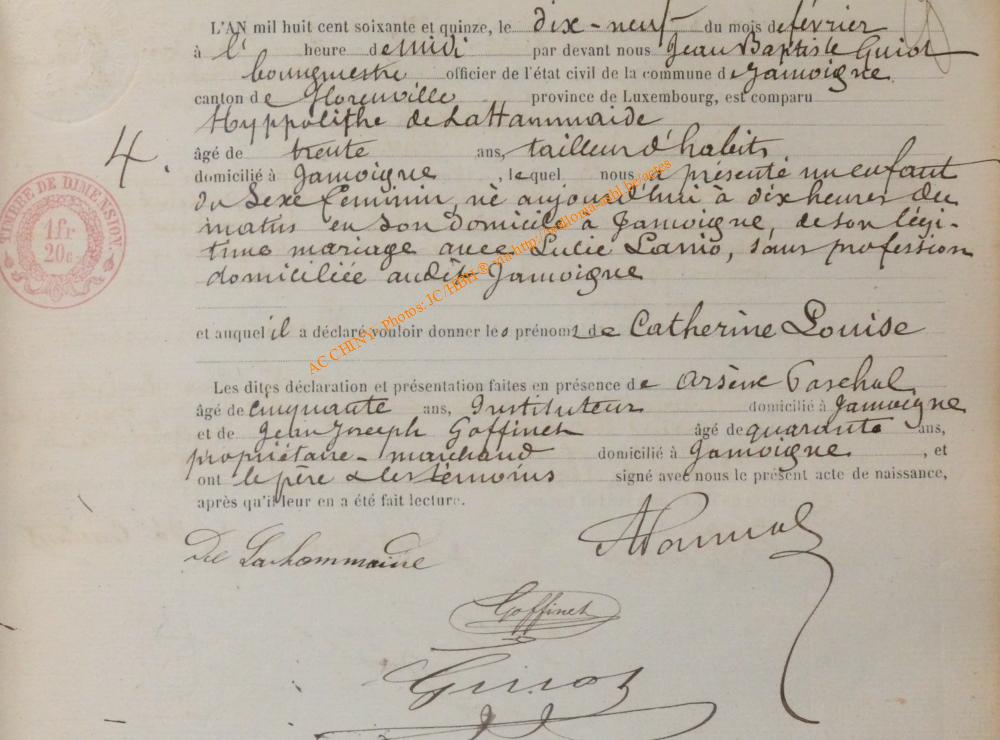 L'AN mil huit cent soixante et quinze, le dix-neuf du mois de février
à l' heure de midi par devant nous Jean Baptiste Guiot
bourgmestre officier de l'état civil de la commune de Jamoigne
canton de Florenville province de Luxembourg, est comparu
Hyppolithe de LaHammaide
4.
âgé de trente ans, tailleur d'habits
domicilié à Jamoigne, lequel nous a présenté un enfant
du sexe féminin, né aujourd'hui à dix heures du
matin en son domicile à Jamoigne, de son légi-
time mariage avec Lucie, sans profession
domiciliée audit Jamoigne
et auquel il a déclaré vouloir donner les prénoms de Catherine Louise
Les dites déclaration et présentation faites en présence de Arsène
âgé de cinquante ans, Instituteur domicilié à Jamoigne
et de Jean Joseph Goffinet âgé de quarante ans,
propriétaire-marchand domicilié à Jamoigne, et
ont le père & les témoins signé avec nous le présent acte de naissance,
après qu'il leur en a été fait lecture.
De Lahammaide
Goffinet
Guiot
TIMBRE DE DIMENSION
1 fr
20 c.
AC CHINY - Photos: JC/HBH® via http://wallonia-mhl.be/actes